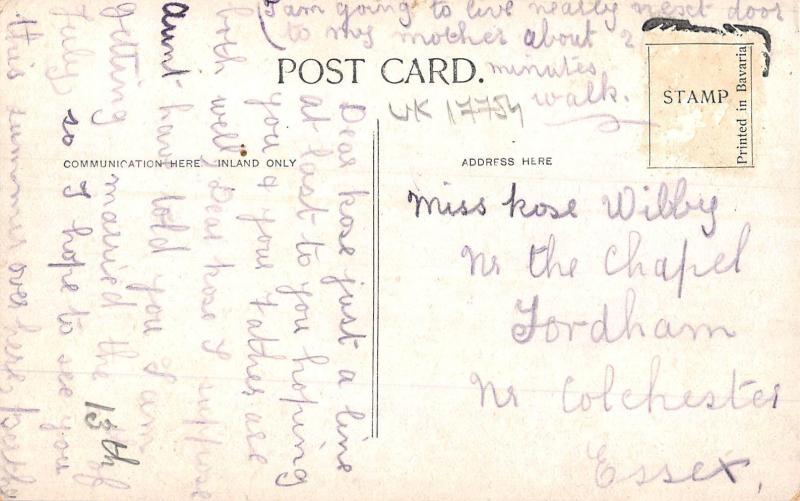 I am going to live nearly next door
to my mother about 2
minutes
walk.
POST CARD.
WK 17754
STAMP
Printed in Bavaria
COMMUNICATION HERE. INLAND ONLY
ADDRESS HERE
Dear Rose just a line
at last to you hoping
you & your Father are
both well, Dear Rose I suppose
Aunt have told you I am
getting married the 13th of
July so I hope to see you
this summer over here,
Miss Rose Wilby
Nr the Chapel
Fordham
Nr Colchester
Essex,